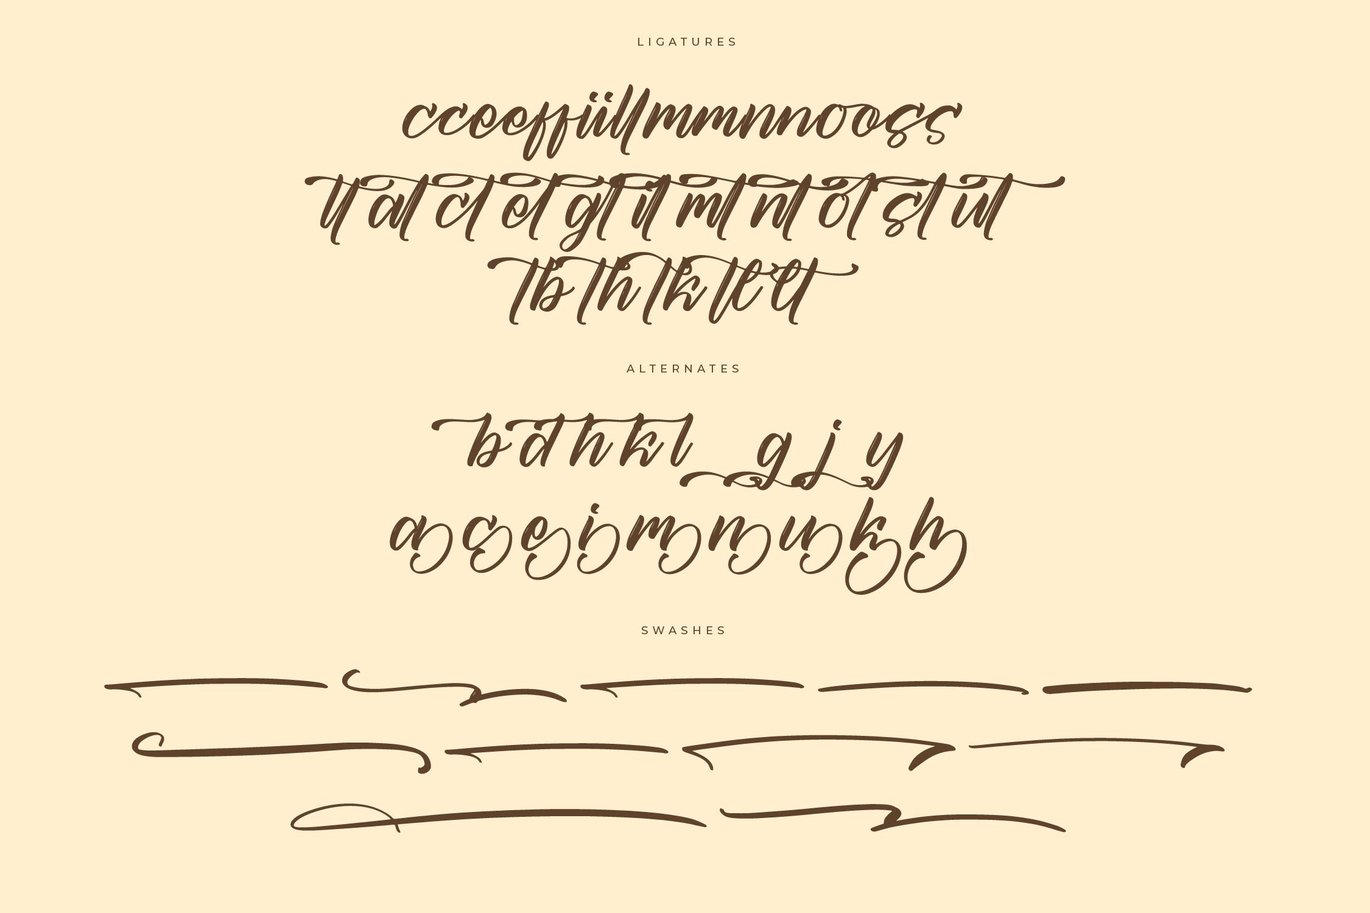 LIGATURES
cceeffiillmmnnooss
tt at ct et gt it mt nt ot st ut
tb th tk tl lt
ALTERNATES
b d h k l g j y
a c e i m n u k h
SWASHES